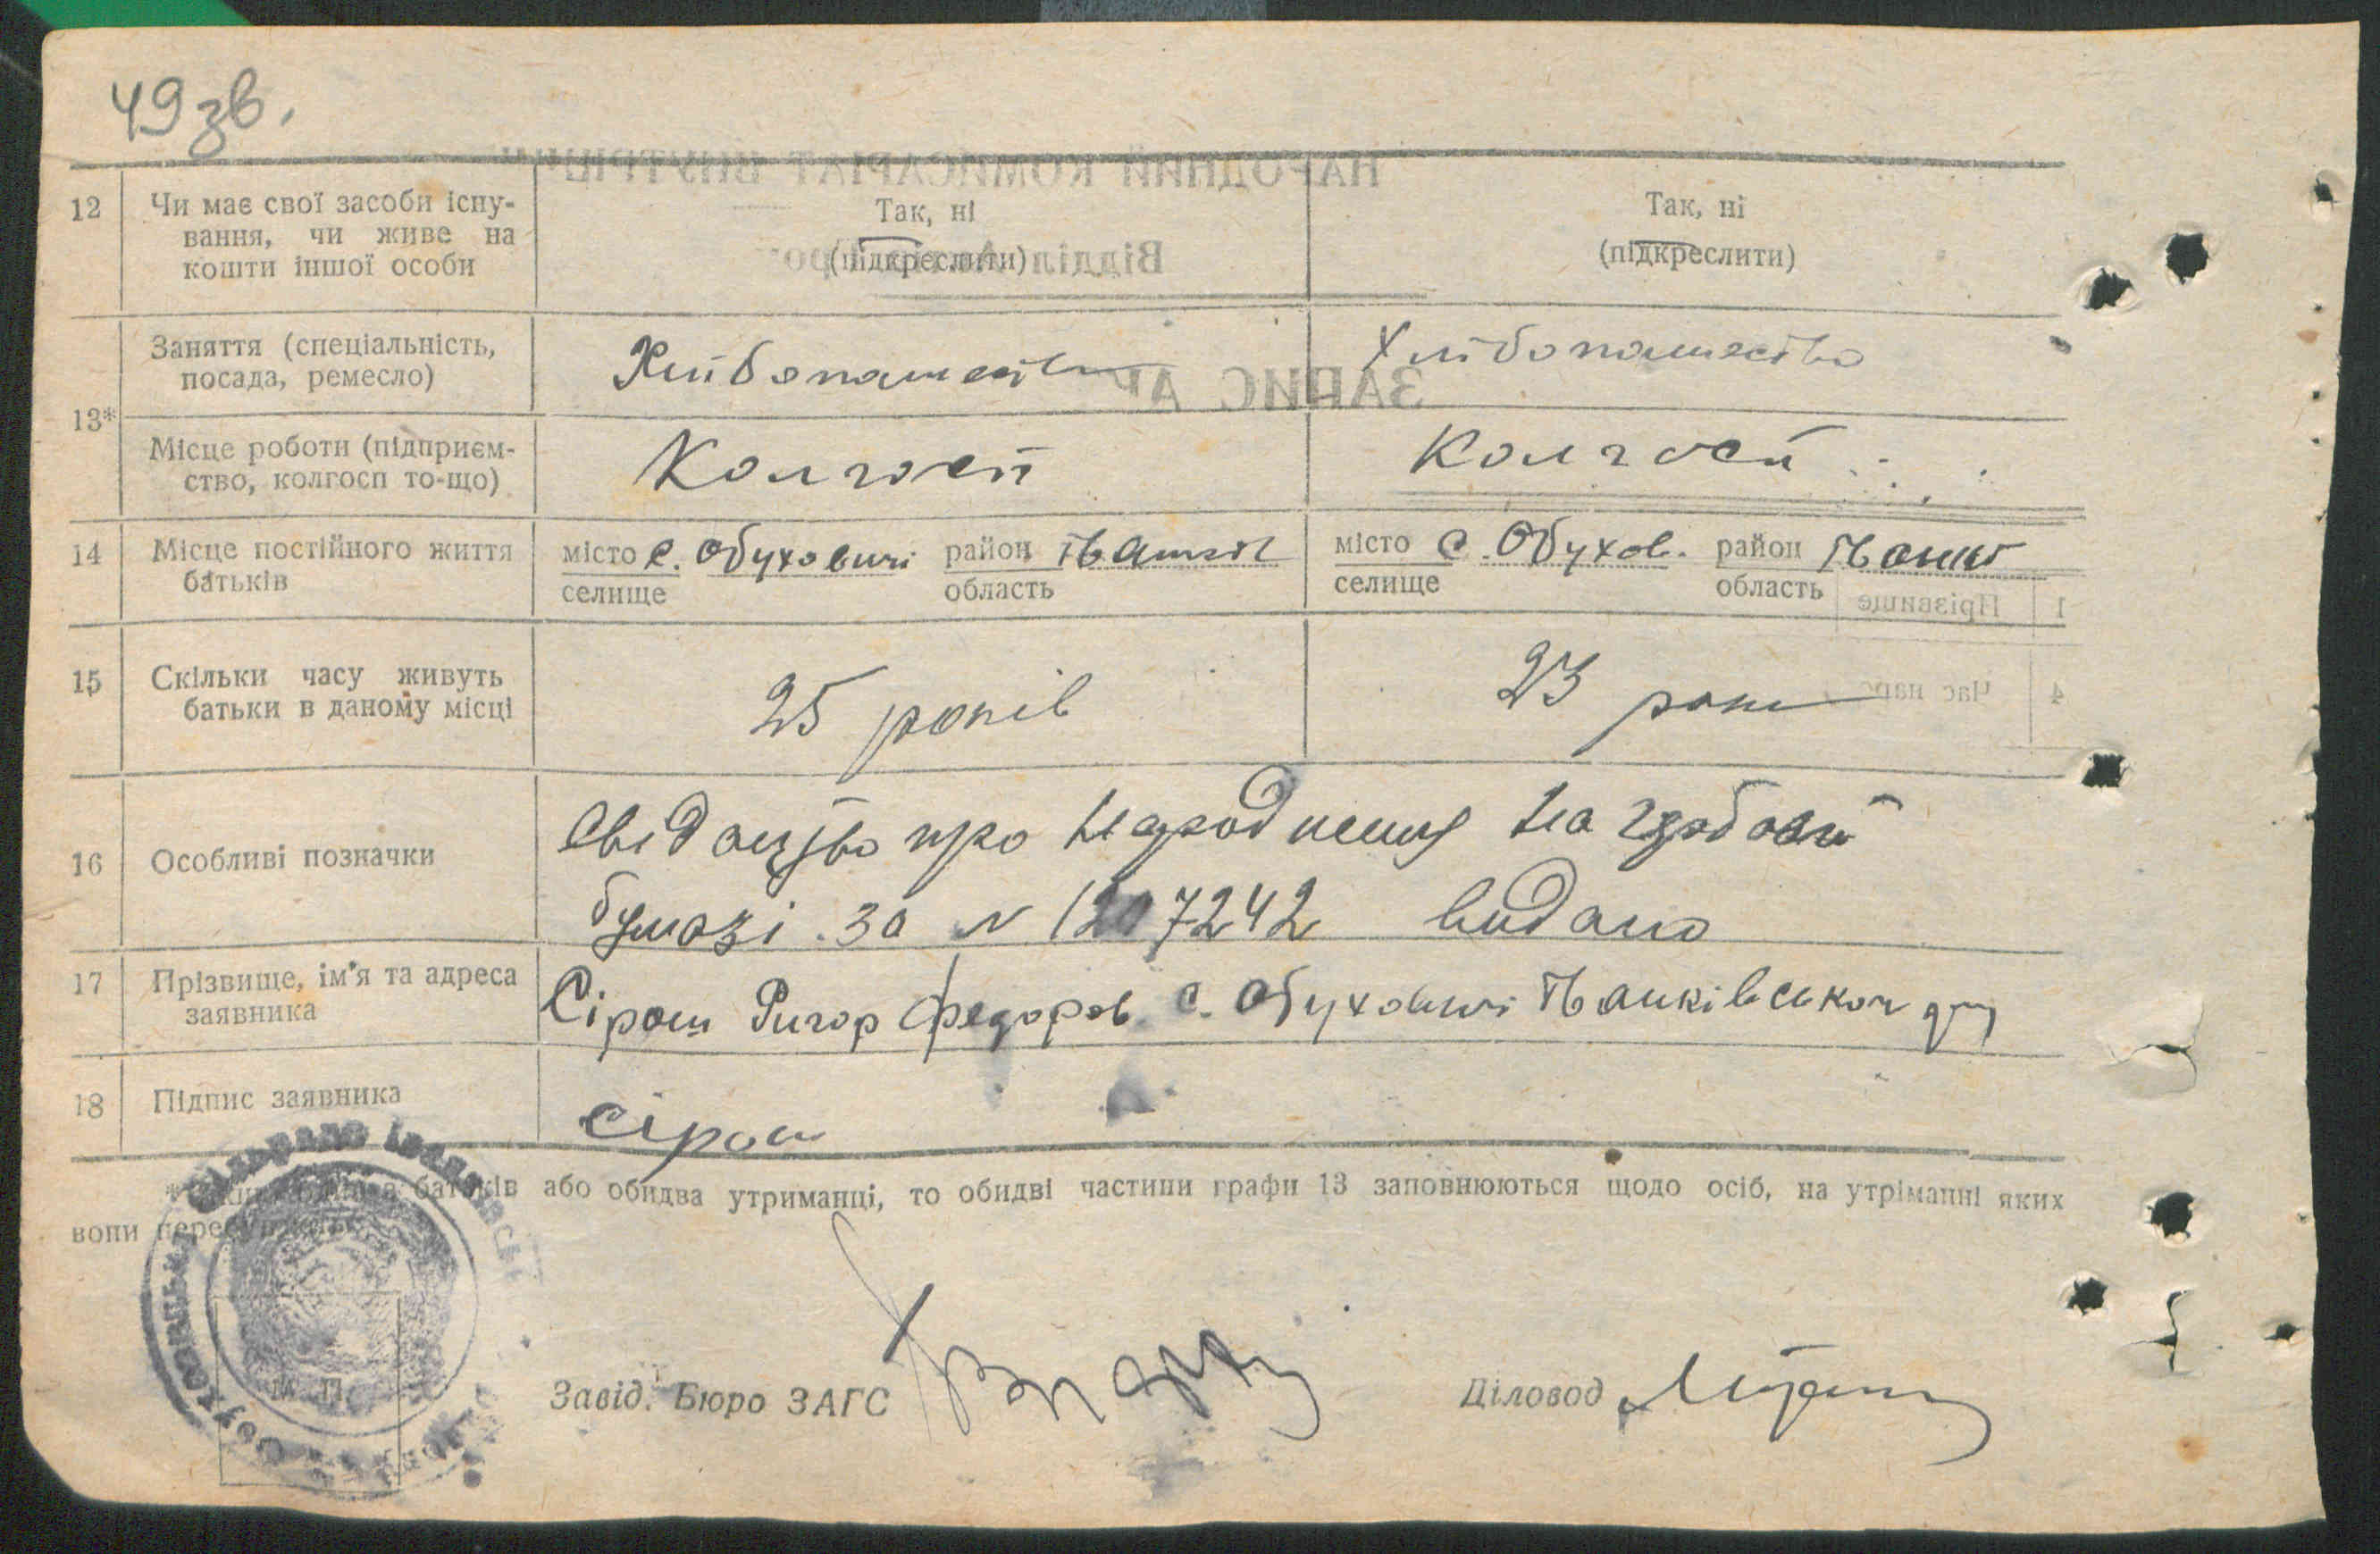 49 зв.
12 Чи має свої засоби існу- Так, ні Так, ні
вання, чи живе на (підкреслити) (підкреслити)
кошти іншої особи
13* Заняття (спеціальність, Хлібопашество Хлібопашество
посада, ремесло)
Місце роботи (підприєм- Колгосп Колгосп
ство, колгосп то-що)
14 Місце постійного життя місто с. Обуховичі район Іванків місто с. Обухов. район Іванків
батьків селище область селище область
15 Скільки часу живуть 25 років 23 роки
батьки в даному місці
16 Особливі позначки Свідоцтво про народження на гербовій
бумазі за № 7242 видано
17 Прізвище, ім'я та адреса Сірош Ригор Федоров. с. Обуховичі Іванківськ
заявника
18 Підпис заявника Сірош
* батьків або обидва утриманці, то обидві частини графи 13 заповнюються щодо осіб, на утріманні яких
вони
М. П.
Завід. Бюро ЗАГС Діловод